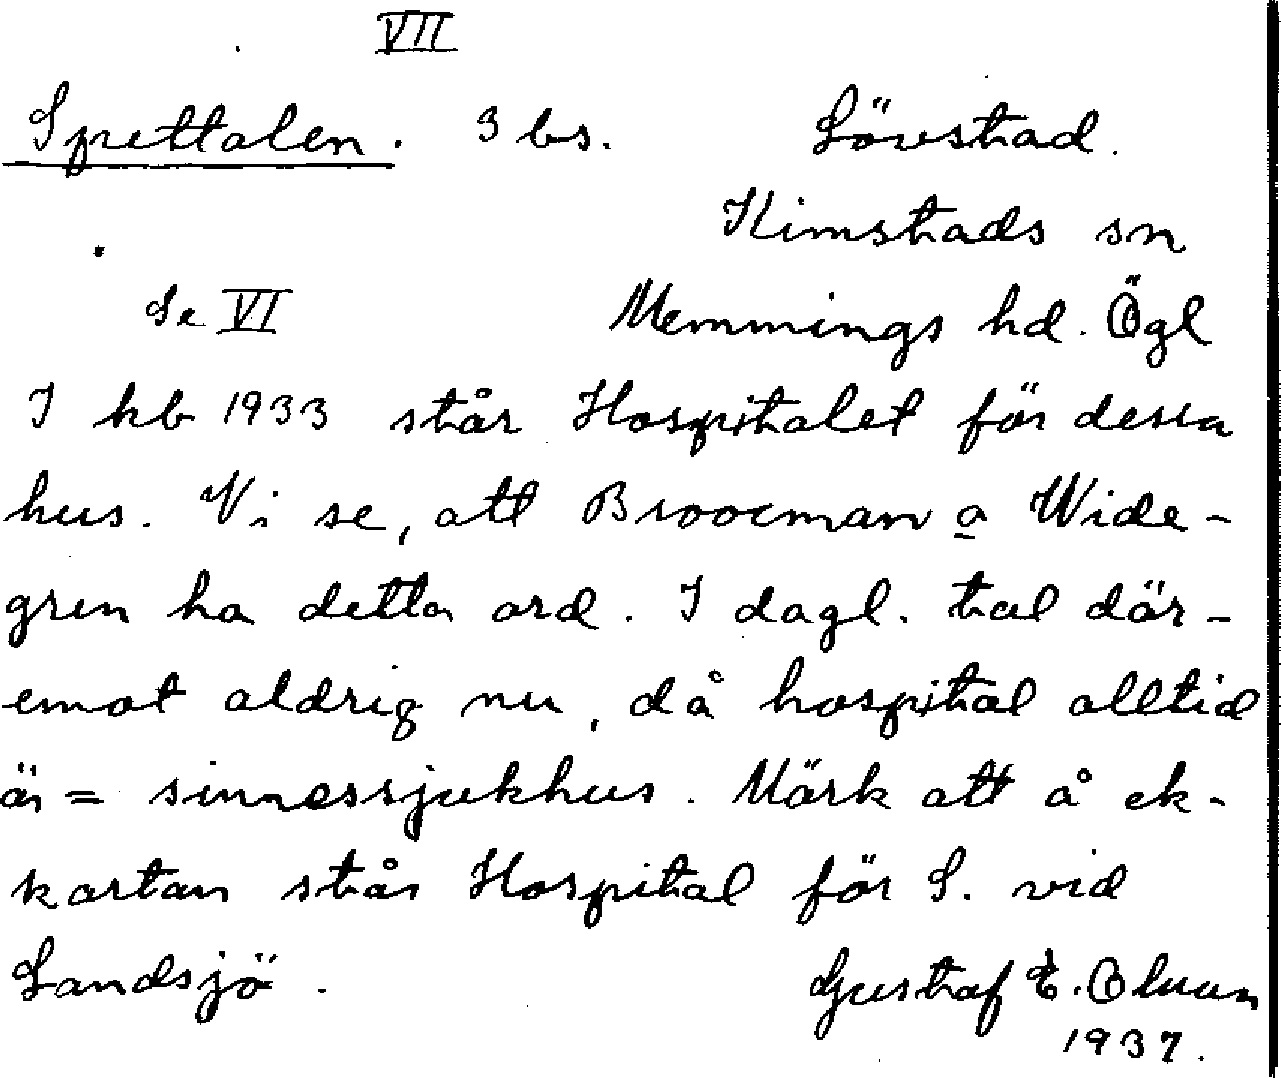 VII
Spettalen. 3 bs. Lövstad.
Kimstads sn
Se VI Memmings hd. Ögl
I kb 1933 står Hospitalet för dessa
hus. Vi se, att Broocman o Wide-
gren ha detta ord. I dagl. tal där-
emot aldrig nu, då hospital alltid
är = sinnessjukhus. Märk att å ek-
kartan står Hospital för S. vid
Landsjö.
Gustaf E.
1937.